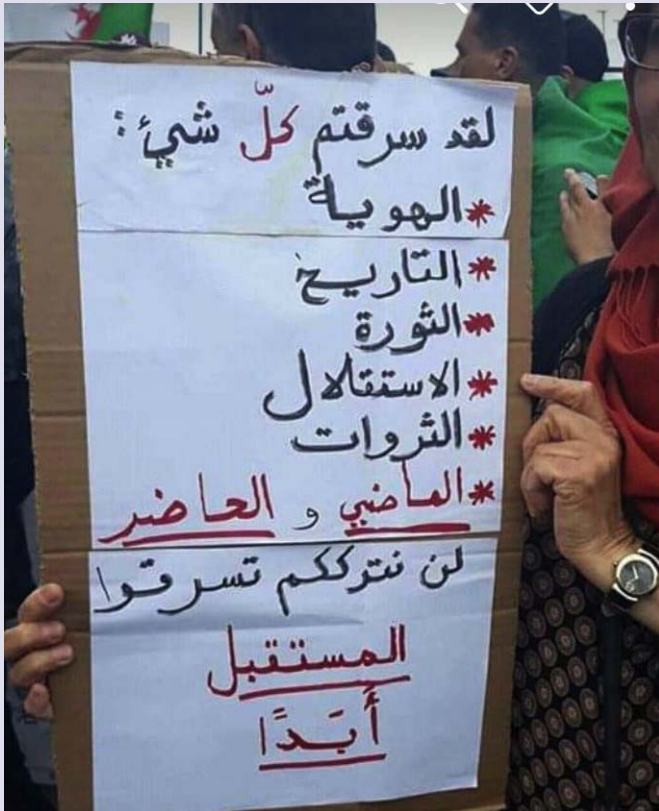 لقد سرقتم كلّ شيئ:
*الهوية
*التاريخ
*الثورة
*الاستقلال
*الثروات
*الماضي و الحاضر
لن نترككم تسرقوا
المستقبل
أَبَدًا